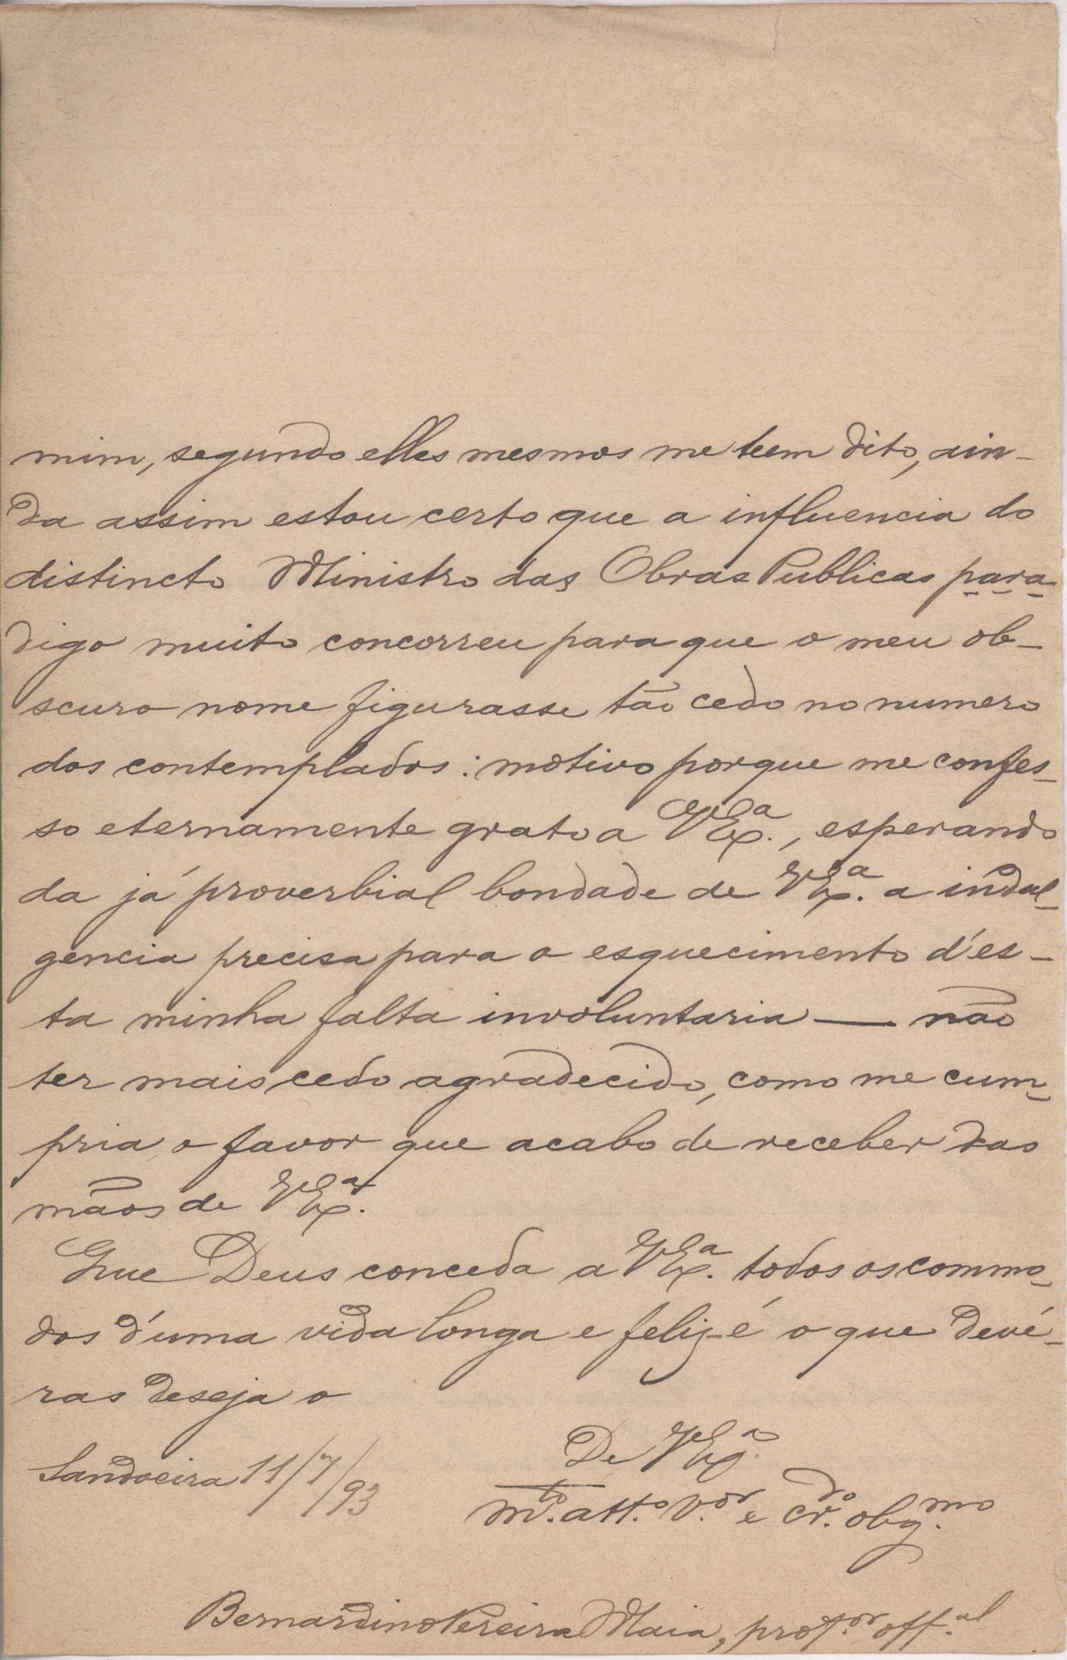 mim, segundo elles mesmos me teem dito, ain-
da assim estou certo que a influencia do
distincto Ministro das Obras Publicas para
digo muito concorreu para que o meu ob-
scuro nome figurasse tão cedo no numero
dos contemplados: motivo porque me confes-
so eternamente grato a V. Ex.ª, esperando
da já proverbial bondade de V. Ex.ª a indul-
gencia precisa para o esquecimento d'es-
ta minha falta involuntaria — não
ter mais cedo agradecido, como me cum-
pria, o favor que acabo de receber das
mãos de V. Ex.ª
Que Deus conceda a V. Ex.ª todos os commo-
dos d'uma vida longa e feliz é o que devé-
ras deseja o
De V. Ex.ª
Sandoeira 11/7/93
m.to att.º v.or e cr.do obg.mo
Bernardino Pereira Maia, prof.or off.al